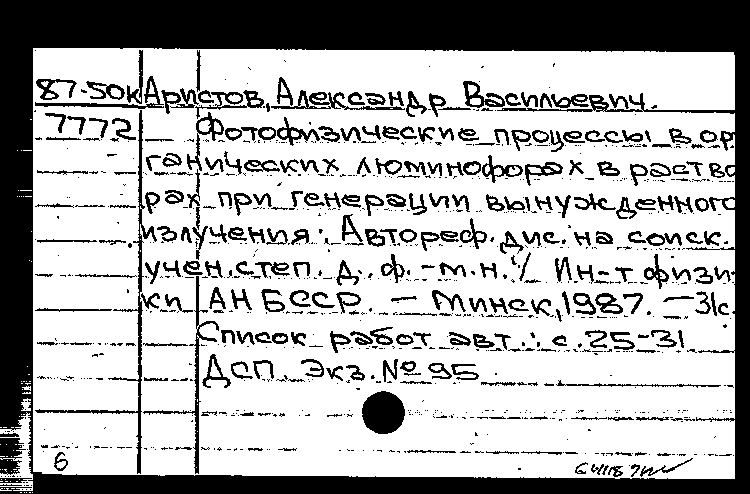 87-50к Аристов, Александр Васильевич.
7772 Фотофизические процессы в ор
ганических люминофорах в раство
рах при генерации вынужденного
излучения: Автореф. дис. на соиск.
учен. степ. д. ф.-м. н. / Ин-т физи-
ки АН БССР. — Минск, 1987. — 31с.
Список работ авт.: с. 25-31
ДСП. Экз. № 95
6